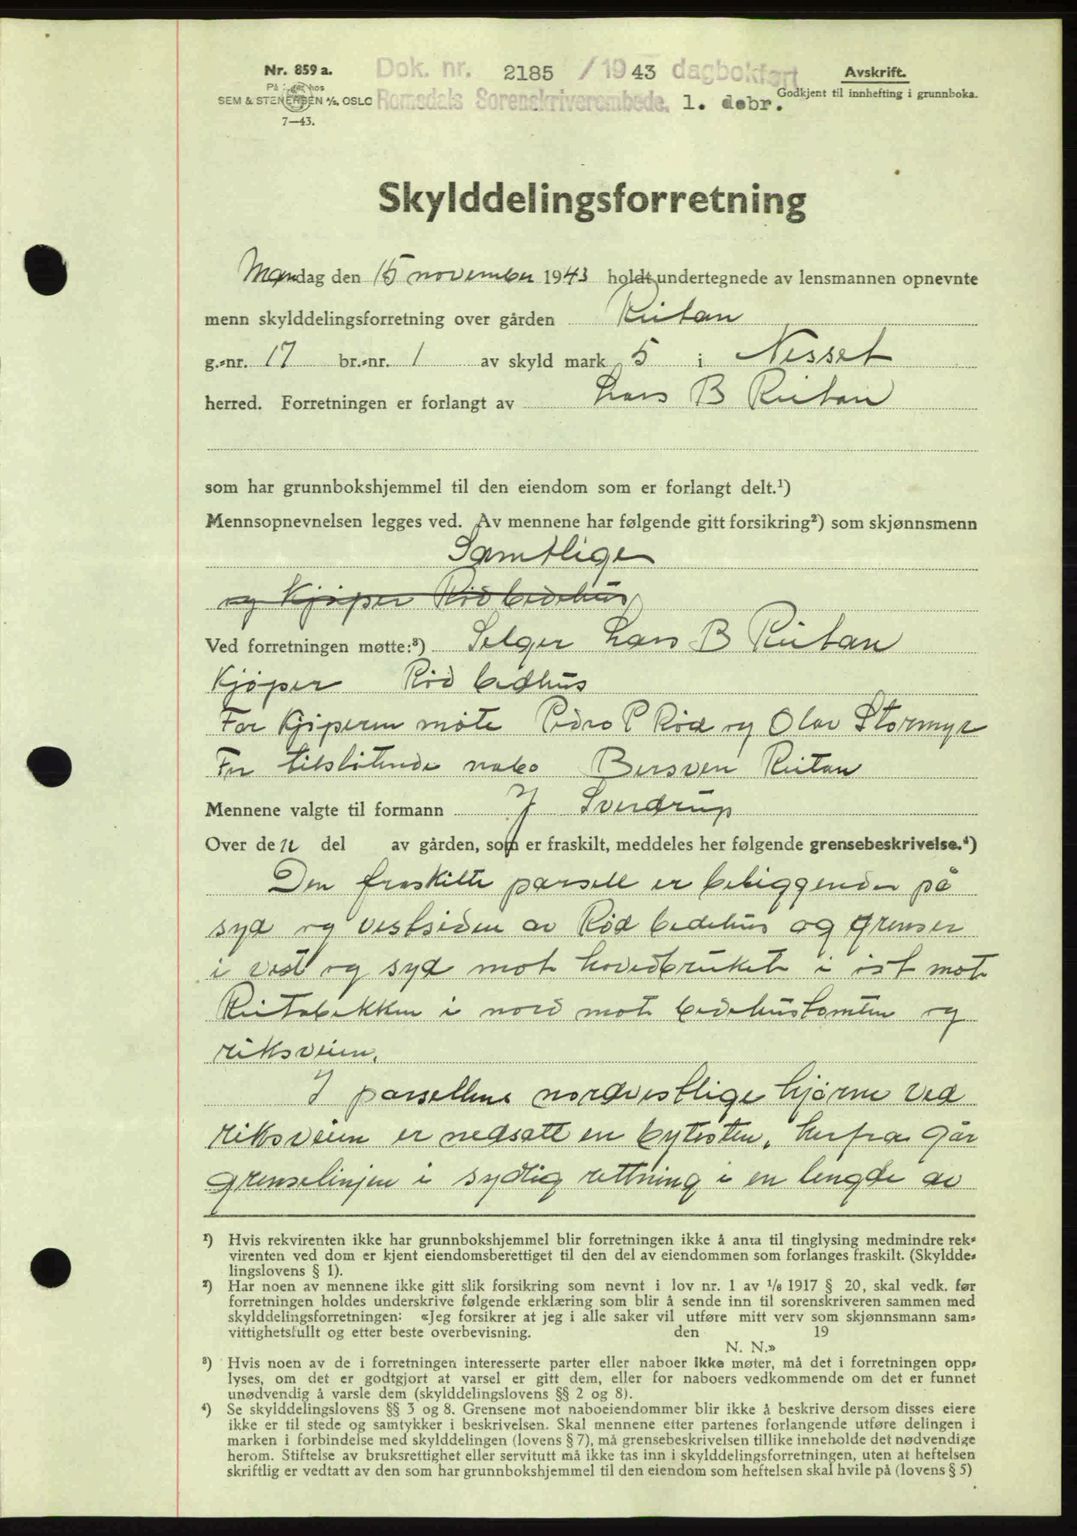 Nr. 859 a.
På lager hos
SEM & STENERSEN A/S, OSLO
7—43.
Dok. nr. 2185 /1943 dagbokført
Romsdals Sorenskriverembede. 1. debr.
Avskrift.
Godkjent til innhefting i grunnboka.
Skylddelingsforretning
Mandag den 15 november 1943 holdt undertegnede av lensmannen opnevnte
menn skylddelingsforretning over gården Ritan
g.-nr. 17 br.-nr. 1 av skyld mark 5 i Nesset
herred. Forretningen er forlangt av Lars B Ritan
som har grunnbokshjemmel til den eiendom som er forlangt delt.¹)
Mennsopnevnelsen legges ved. Av mennene har følgende gitt forsikring²) som skjønnsmenn
Samtlige
og Kjøper Rød bedehus
Ved forretningen møtte:³) Selger Lars B Ritan
Kjøper Rød bedhus
For Kjøperen møte Pedro P Rød og Olav Stormyr
For tilstøtende nabo Bersven Ritan
Mennene valgte til formann J Sverdrup
Over den del av gården, som er fraskilt, meddeles her følgende grensebeskrivelse.⁴)
Den fraskilte parsell er beliggende på
syd og vestsiden av Rød bedehus og grenser
i vest og syd mot hovedbruket i øst mot
Ritabekken i nord mot bedehustomten og
riksveien.
I parsellens nordvestlige hjørne ved
riksveien er nedsatt en bytesten, herfra går
grenselinjen i sydlig rettning i en lengde av
¹) Hvis rekvirenten ikke har grunnbokshjemmel blir forretningen ikke å anta til tinglysing medmindre rek-
virenten ved dom er kjent eiendomsberettiget til den del av eiendommen som forlanges fraskilt. (Skyldde-
lingslovens § 1).
²) Har noen av mennene ikke gitt slik forsikring som nevnt i lov nr. 1 av 1/6 1917 § 20, skal vedk. før
forretningen holdes underskrive følgende erklæring som blir å sende inn til sorenskriveren sammen med
skylddelingsforretningen: «Jeg forsikrer at jeg i alle saker vil utføre mitt verv som skjønnsmann sam-
vittighetsfullt og etter beste overbevisning. den 19
N. N.»
³) Hvis noen av de i forretningen interesserte parter eller naboer ikke møter, må det i forretningen opp-
lyses, om det er godtgjort at varsel er gitt dem, eller for naboers vedkommende om det er funnet
unødvendig å varsle dem (skylddelingslovens §§ 2 og 8).
⁴) Se skylddelingslovens §§ 3 og 8. Grensene mot naboeiendommer blir ikke å beskrive dersom disses eiere
ikke er til stede og samtykker i beskrivelsen. Skal mennene etter partenes forlangende utføre delingen i
marken i forbindelse med skylddelingen (lovens § 7), må grensebeskrivelsen tillike inneholde det nødvendige
herom. Stiftelse av bruksrettighet eller servitutt må ikke tas inn i skylddelingsforretningen, uten at heftelsen
skriftlig er vedtatt av den som har grunnbokshjemmel til den eiendom som heftelsen skal hvile på (lovens § 5)